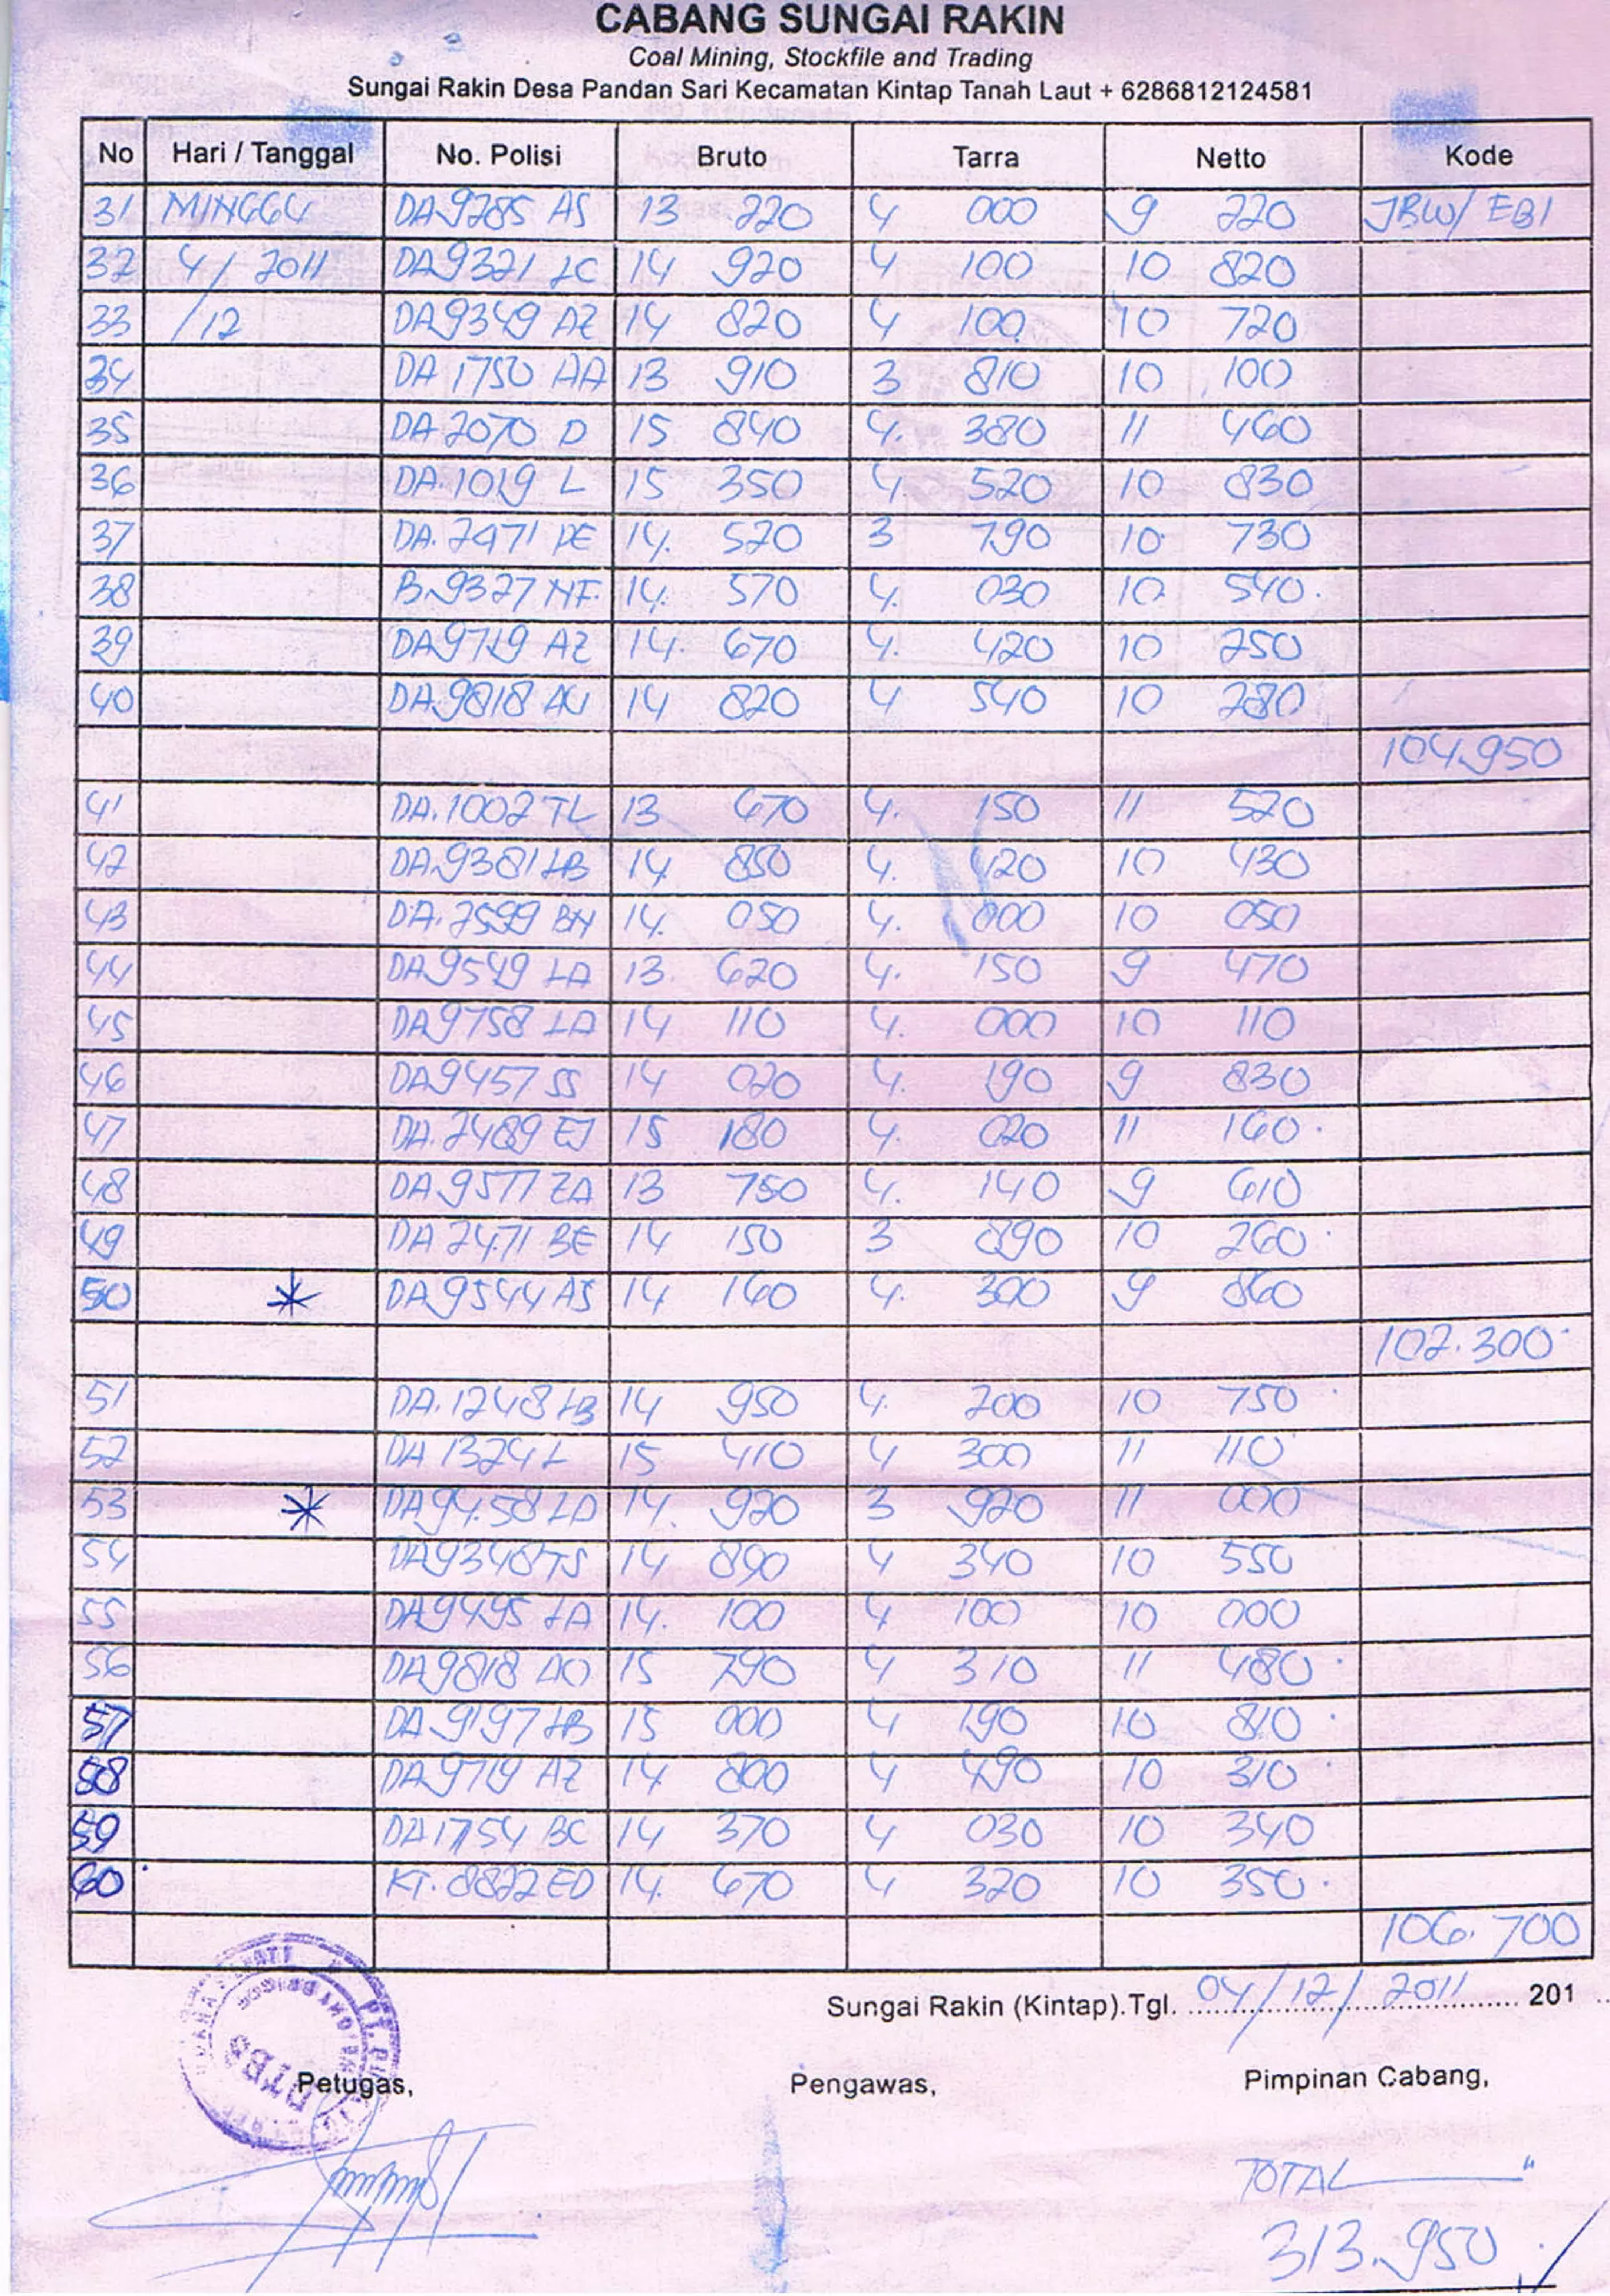 CABANG SUNGAI RAKIN
Coal Mining, Stockfile and Trading
Sungai Rakin Desa Pandan Sari Kecamatan Kintap Tanah Laut + 6286812124581
No Hari / Tanggal No. Polisi Bruto Tarra Netto Kode
31 MINGGU DA9285 AS 13 220 4 000 9 220 JBW/ EBI
32 4/ 2011 DA9321 LC 14 920 4 100 10 820
33 /12 DA9349 AZ 14 820 4 100 10 720
34 DA 1750 AA 13 910 3 810 10 100
35 DA 2070 D 15 840 4. 380 11 460
36 DA.1019 L 15 350 4. 520 10 830
37 DA. 2471 DE 14. 520 3 790 10 730
38 B.9327 NF. 14. 570 4. 030 10 540.
39 DA9719 AZ 14. 670 4. 420 10 250
40 DA.9818 AU 14 820 4 540 10 280
104.950
41 DA.1002 TL 13 670 4. 150 11 520
42 DA.9381 HB 14 850 4. 420 10 430
43 DA.2599 BN 14. 050 4. 000 10 050
44 DA9549 LA 13. 620 4. 150 9 470
45 DA9758 LA 14 110 4. 000 10 110
46 DA9457 SS 14 020 4. 190 9 830
47 DA.2489 EJ 15 180 4. 020 11 160.
48 DA.9577 ZA 13 750 4. 140 9 610
49 DA 2471 BE 14 150 3 890 10 260.
50 * DA9544 AS 14 160 4. 300 9 860
102.300
51 DA.1248 HB 14 950 4. 200 10 750
52 DA 1324 L 15 410 4 300 11 110
53 * DA94.58 LA 14. 920 3 920 11 000
54 DA9348 TS 14 890 4 340 10 550
55 DA9495 LA 14. 100 4 100 10 000
56 DA9818 AO 15 790 4 310 11 480.
57 DA.9197 HB 15 000 4 190 10 810.
58 DA9719 AZ 14 800 4 490 10 310
59 DA1754 BC 14 370 4 030 10 340
60 KT. 8822 ED 14. 670 4 320 10 350.
106.700
Sungai Rakin (Kintap).Tgl. 04/12/2011 201
Petugas, Pengawas, Pimpinan Cabang,
TOTAL
313.950